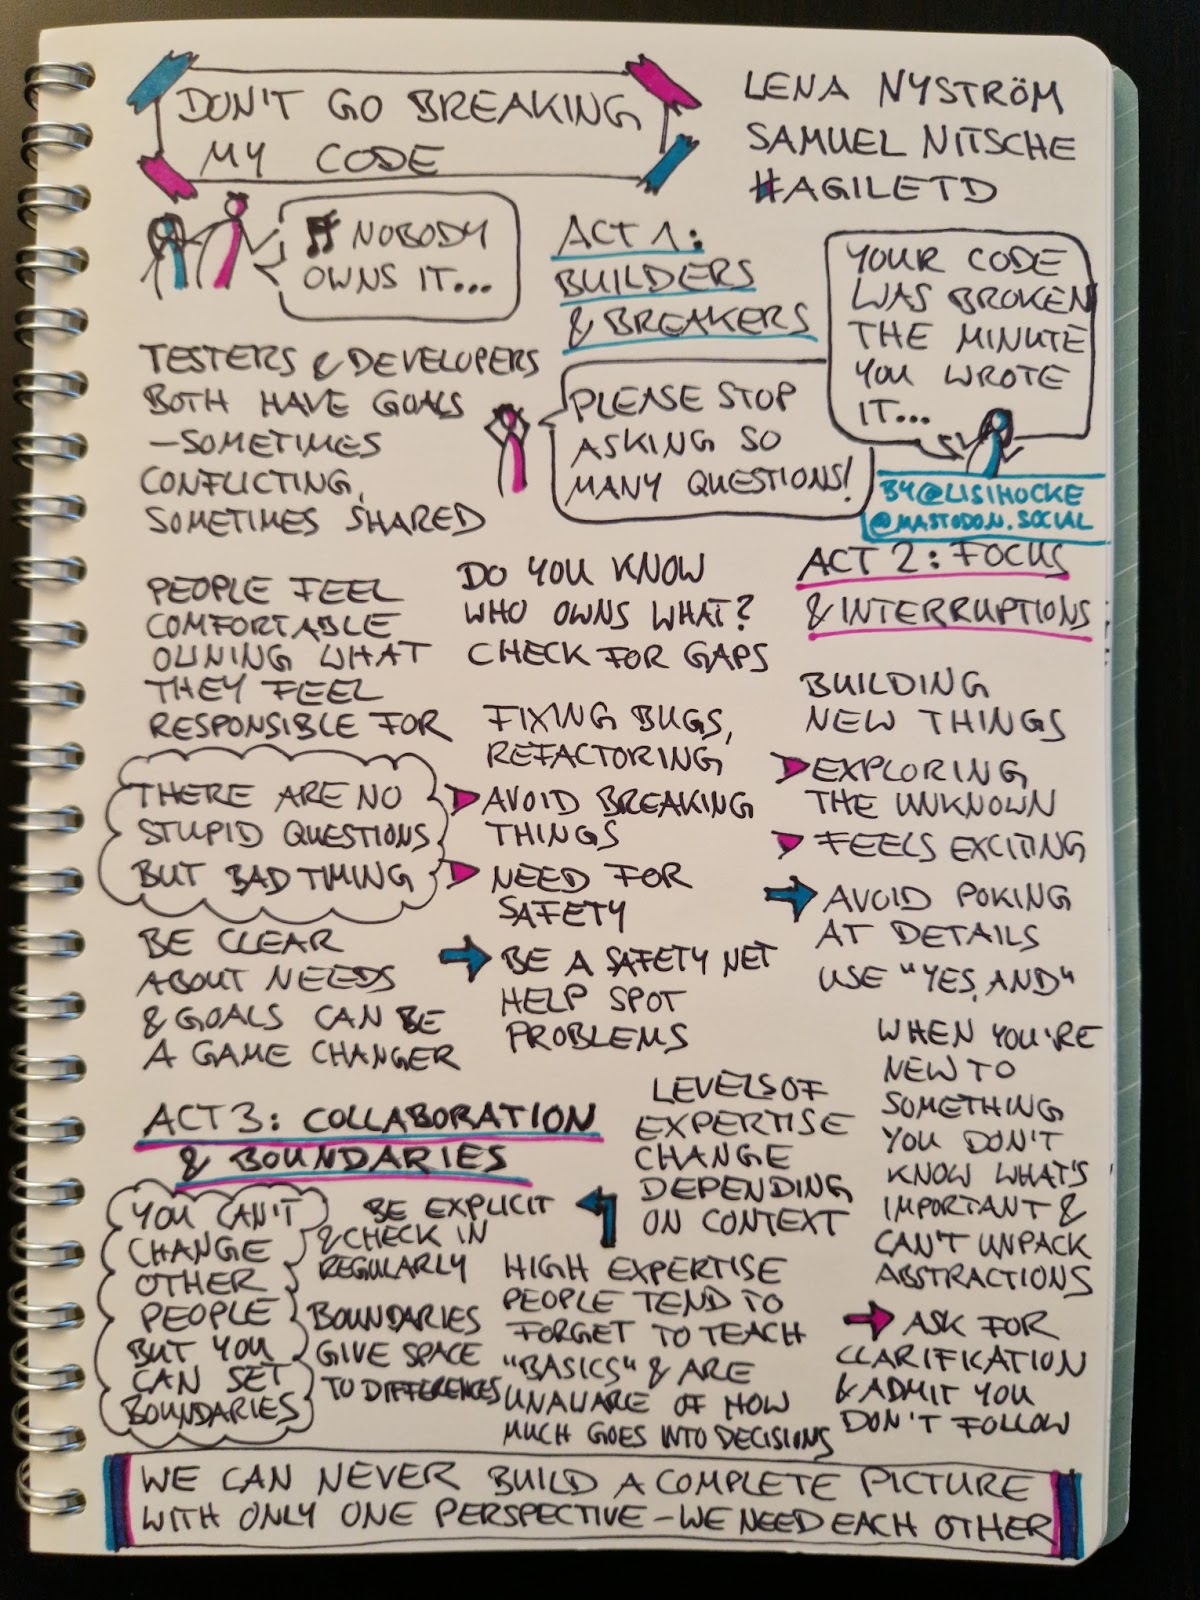 DON'T GO BREAKING
MY CODE
LENA NYSTRÖM
SAMUEL NITSCHE
#AGILETD
NOBODY
OWNS IT...
ACT 1:
BUILDERS
& BREAKERS
YOUR CODE
WAS BROKEN
THE MINUTE
YOU WROTE
IT...
PLEASE STOP
ASKING SO
MANY QUESTIONS!
BY @LISIHOCKE
@MASTODON.SOCIAL
TESTERS & DEVELOPERS
BOTH HAVE GOALS
—SOMETIMES
CONFLICTING,
SOMETIMES SHARED
PEOPLE FEEL
COMFORTABLE
OWNING WHAT
THEY FEEL
RESPONSIBLE FOR
DO YOU KNOW
WHO OWNS WHAT?
CHECK FOR GAPS
ACT 2: FOCUS
& INTERRUPTIONS
THERE ARE NO
STUPID QUESTIONS
BUT BAD TIMING
BE CLEAR
ABOUT NEEDS
& GOALS CAN BE
A GAME CHANGER
FIXING BUGS,
REFACTORING
AVOID BREAKING
THINGS
NEED FOR
SAFETY
BE A SAFETY NET
HELP SPOT
PROBLEMS
BUILDING
NEW THINGS
EXPLORING
THE UNKNOWN
FEELS EXCITING
AVOID POKING
AT DETAILS
USE "YES, AND"
ACT 3: COLLABORATION
& BOUNDARIES
YOU CAN'T
CHANGE
OTHER
PEOPLE
BUT YOU
CAN SET
BOUNDARIES
BE EXPLICIT
& CHECK IN
REGULARLY
BOUNDARIES
GIVE SPACE
TO DIFFERENCES
LEVELS OF
EXPERTISE
CHANGE
DEPENDING
ON CONTEXT
HIGH EXPERTISE
PEOPLE TEND TO
FORGET TO TEACH
"BASICS" & ARE
UNAWARE OF HOW
MUCH GOES INTO DECISIONS
WHEN YOU'RE
NEW TO
SOMETHING
YOU DON'T
KNOW WHAT'S
IMPORTANT &
CAN'T UNPACK
ABSTRACTIONS
ASK FOR
CLARIFICATION
& ADMIT YOU
DON'T FOLLOW
WE CAN NEVER BUILD A COMPLETE PICTURE
WITH ONLY ONE PERSPECTIVE – WE NEED EACH OTHER